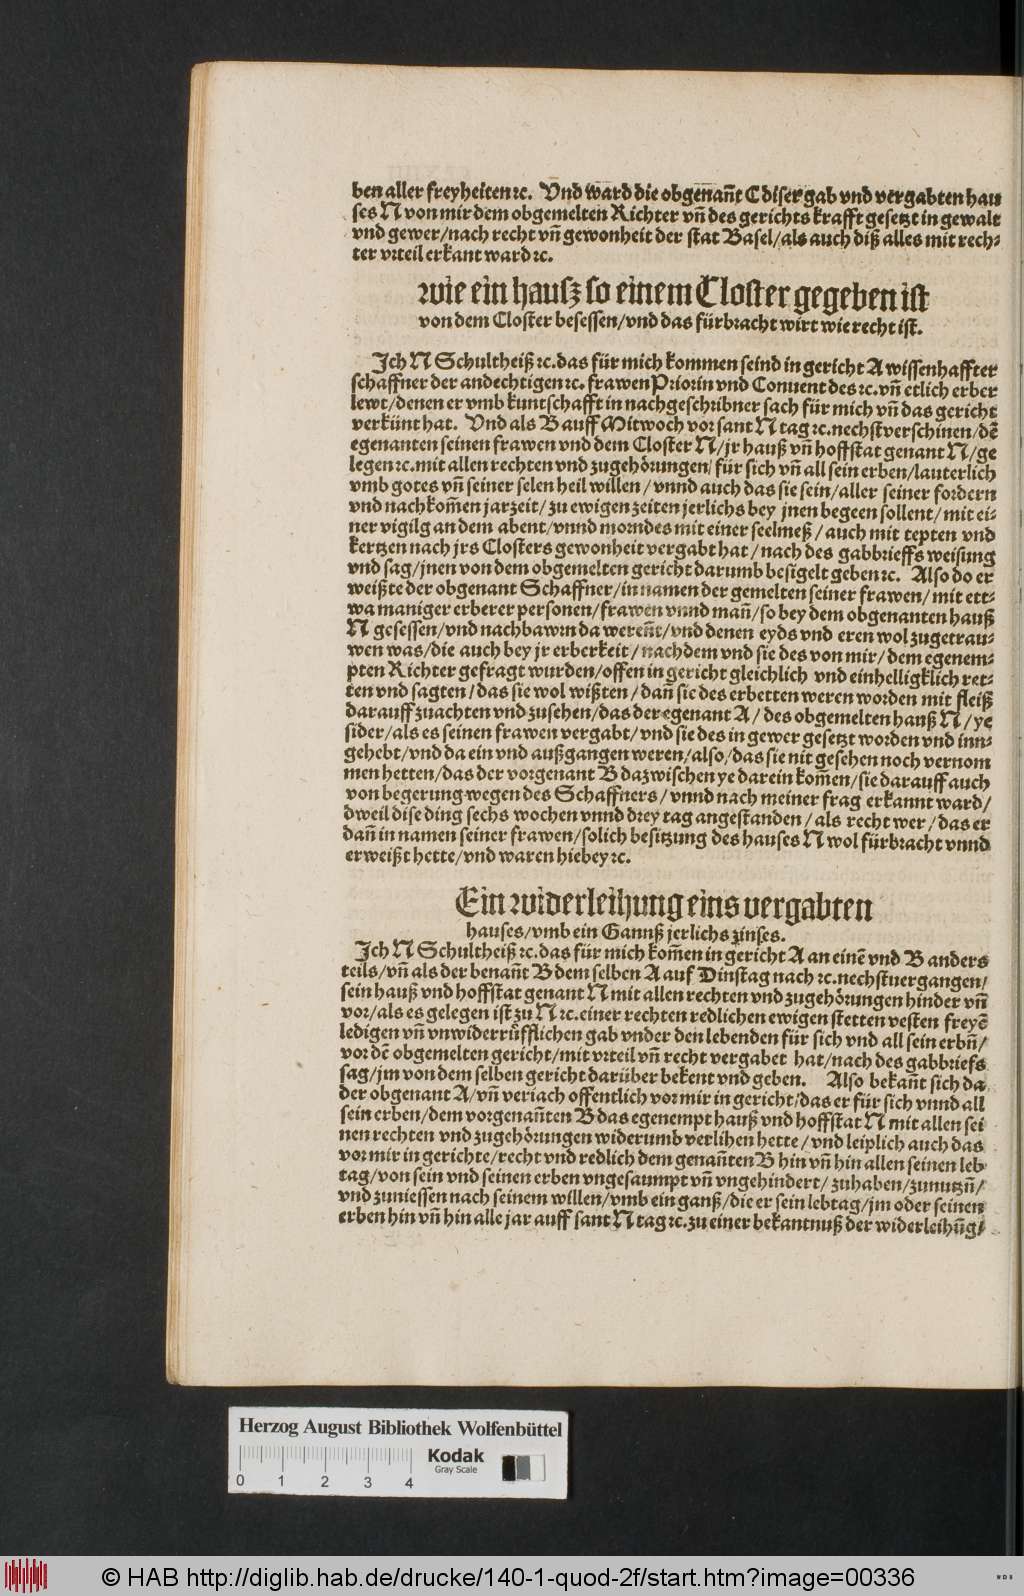 ben aller freyheiten ꝛc. Vnd ward die obgenañt C diser gab vnd vergabten hau
ses N von mir dem obgemelten Richter vñ des gerichts krafft gesetzt in gewalt
vnd gewer/nach recht vñ gewonheit der stat Basel/als auch diß alles mit rech-
ter vrteil erkant ward ꝛc.
Wie ein hausz so einem Closter gegeben ist
von dem Closter besessen/vnd das fürbracht wirt wie recht ist.
Ich N Schultheiß ꝛc. das für mich kommen seind in gericht A wissenhaffter
schaffner der andechtigen ꝛc. frawen Priorin vnd Conuent des ꝛc. vñ etlich erber
lewt/denen er vmb kuntschafft in nachgeschribner sach für mich vñ das gericht
verkünt hat. Vnd als B auff Mitwoch vor sant N tag ꝛc. nechstverschinen/dē
egenanten seinen frawen vnd dem Closter N/jr hauß vñ hoffstat genant N/ge
legen ꝛc. mit allen rechten vnd zugehörungen/für sich vñ all sein erben/lauterlich
vmb gotes vñ seiner selen heil willen/vnnd auch das sie sein/aller seiner fordern
vnd nachkom̃en jarzeit/zu ewigen zeiten jerlichs bey jnen begeen sollent/mit ei-
ner vigilg an dem abent/vnnd morndes mit einer seelmeß/auch mit tepten vnd
kertzen nach jrs Closters gewonheit vergabt hat/nach des gabbrieffs weisung
vnd sag/jnen von dem obgemelten gericht darumb besigelt geben ꝛc. Also do er
weißte der obgenant Schaffner/in namen der gemelten seiner frawen/mit ett-
wa maniger erberer personen/frawen vnnd mañ/so bey dem obgenanten hauß
N gesessen/vnd nachbawrn da wereñt/vnd denen eyds vnd eren wol zugetrau-
wen was/die auch bey jr erberkeit/nachdem vnd sie des von mir/dem egenem-
pten Richter gefragt wurden/offen in gericht gleichlich vnd einhelligklich ret-
ten vnd sagten/das sie wol wißten/dañ sie des erbetten weren worden mit fleiß
darauff zuachten vnd zusehen/das der egenant A/des obgemelten hauß N/ye
sider/als es seinen frawen vergabt/vnd sie des in gewer gesetzt worden vnd inn-
gehebt/vnd da ein vnd außgangen weren/also/das sie nit gesehen noch vernom
men hetten/das der vorgenant B dazwischen ye darein kom̃en/sie darauff auch
von begerung wegen des Schaffners/vnnd nach meiner frag erkannt ward/
dweil dise ding sechs wochen vnnd drey tag angestanden/als recht wer/das er
dañ in namen seiner frawen/solich besitzung des hauses N wol fürbracht vnnd
erweißt hette/vnd waren hiebey ꝛc.
Ein widerleihung eins vergabten
hauses/vmb ein Gannß jerlichs zinses.
Ich N Schultheiß ꝛc. das für mich kom̃en in gericht A an einē vnd B anders
teils/vñ als der benañt B dem selben A auf Dinstag nach ꝛc. nechstuergangen/
sein hauß vnd hoffstat genant N mit allen rechten vnd zugehörungen hinder vñ
vor/als es gelegen ist zu N ꝛc. einer rechten redlichen ewigen stetten vesten freyē
ledigen vñ vnwiderrüfflichen gab vnder den lebenden für sich vnd all sein erbñ/
vor dē obgemelten gericht/mit vrteil vñ recht vergabet hat/nach des gabbriefs
sag/jm von dem selben gericht darüber bekent vnd geben. Also bekañt sich da
der obgenant A/vñ veriach offentlich vor mir in gericht/das er für sich vnnd all
sein erben/dem vorgenañten B das egenempt hauß vnd hoffstat N mit allen sei
nen rechten vnd zugehörungen widerumb verlihen hette/vnd leiplich auch das
vor mir in gerichte/recht vnd redlich dem genañten B hin vñ hin allen seinen leb
tag/von sein vnd seinen erben vngesaumpt vñ vngehindert/zuhaben/zunutzñ/
vnd zuniessen nach seinem willen/vmb ein ganß/die er sein lebtag/jm oder seinen
erben hin vñ hin alle jar auff sant N tag ꝛc. zu einer bekantnuß der widerleihūg/
Herzog August Bibliothek Wolfenbüttel
Kodak
Gray Scale
0 1 2 3 4
© HAB http://diglib.hab.de/drucke/140-1-quod-2f/start.htm?image=00336